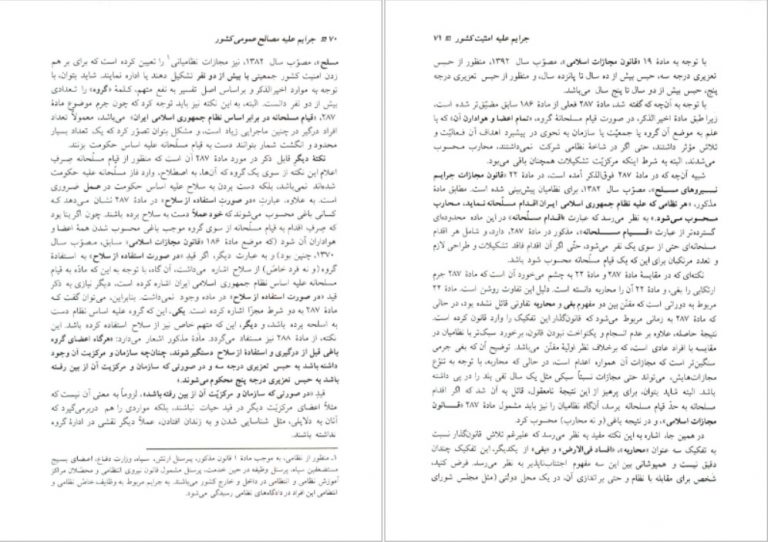 ۷۰ جرایم علیه مصالح عمومی کشور
مسلح»، مصوّب سال ۱۳۸۲، نیز مجازات نظامیانی۱ را تعیین کرده است که برای بر هم
زدن امنیت کشور جمعیتی با بیش از دو نفر تشکیل دهند یا اداره نمایند. شاید بتوان، با
توجه به موارد اخیرالذکر و براساس اصل تفسیر به نفع متهم، کلمۀ «گروه» را تعدادی
بیش از دو نفر دانست. البته، به این نکته نیز باید توجه کرد که چون جرم موضوع مادۀ
۲۸۷، «قیام مسلحانه در برابر اساس نظام جمهوری اسلامی ایران» می‌باشد، معمولاً تعداد
افراد درگیر در چنین ماجرایی زیاد است، و مشکل بتوان تصوّر کرد که یک تعداد بسیار
محدود و انگشت شمار بتوانند دست به قیام مسلّحانه علیه اساس حکومت بزنند.
نکتۀ دیگر قابل ذکر در مورد مادۀ ۲۸۷ آن است که منظور از قیام مسلّحانه صِرفِ
اعلام این نکته از سوی یک گروه که آن‌ها، به‌اصطلاح، وارد فاز مسلّحانه علیه حکومت
شده‌اند نمی‌باشد، بلکه دست بردن به سلاح علیه اساس حکومت در عمل ضروری
است. به علاوه، عبارتِ «در صورتِ استفاده از سلاح» در مادۀ ۲۸۷ نشان می‌دهد که
کسانی باغی محسوب می‌شوند که خود عملاً دست به سلاح برده باشند. چون اگر بنا بود
که صرفِ اقدام به قیام مسلّحانه از سوی گروه موجب باغی محسوب شدن همۀ اعضا و
هواداران آن شود (که موضع مادۀ ۱۸۶ «قانون مجازات اسلامی» سابق، مصوّب سال
۱۳۷۰، چنین بود) و به عبارت دیگر، اگر قید «در صورت استفاده از سلاح» به استفادۀ
گروه (و نه فرد خاطی) از سلاح اشاره می‌داشت، آن گاه، با توجه به این که مادّه به قیام
مسلحانه علیه اساس نظام جمهوری اسلامی ایران اشاره کرده است، دیگر نیازی به ذکر
قید «در صورت استفاده از سلاح» در ماده وجود نمی‌داشت. بنابراین، می‌توان گفت که
مادۀ ۲۸۷ به دو شرط مجزّا اشاره کرده است. یکی، این که گروه علیه اساس نظام دست
به اسلحه برده باشد، و دیگر، این که متهم خاص نیز از سلاح استفاده کرده باشد. این
نکته، از مادۀ ۲۸۸ نیز مستفاد می‌گردد. مادۀ مذکور اشعار می‌دارد: «هرگاه اعضای گروه
باغی قبل از درگیری و استفادۀ از سلاح دستگیر شوند، چنان‌چه سازمان و مرکزیت آن وجود
داشته باشد به حبس تعزیری درجه سه و در صورتی که سازمان و مرکزیت آن از بین رفته
باشد به حبس تعزیری درجه پنج محکوم می‌شوند.»
قید «در صورتی که سازمان و مرکزیّت آن از بین رفته باشد»، لزوماً به معنی آن نیست که
مثلاً اعضای مرکزیّت دیگر در قید حیات نباشند، بلکه مواردی را هم دربرمی‌گیرد که
آنان به دلایلی، مثل شناسایی شدن و به زندان افتادن، عملاً دیگر نقشی در ادارۀ گروه
نداشته باشند.
۱ـ منظور از نظامی، به موجب مادۀ ۱ قانون مذکور، پرسنل ارتش، سپاه، وزارت دفاع، اعضای بسیج
مستضعفین سپاه، پرسنل وظیفه در حین خدمت، پرسنل مشمول قانون نیروی انتظامی و محصلان مراکز
آموزش نظامی و انتظامی در داخل و خارج کشور می‌باشند. به جرایم مربوط به وظایف خاصّ نظامی و
انتظامی این افراد در دادگاه‌های نظامی رسیدگی می‌شود.
جرایم علیه امنیت کشور ۷۱
با توجه به مادۀ ۱۹ «قانون مجازات اسلامی»، مصوّب سال ۱۳۹۲، منظور از حبس
تعزیری درجه سه، حبس بیش از ده سال تا پانزده سال، و منظور از حبس تعزیری درجه
پنج، حبس بیش از دو سال تا پنج سال می‌باشد.
با توجه به آن‌چه که گفته شد، مادۀ ۲۸۷ فعلی از مادۀ ۱۸۶ سابق مضیّق‌تر شده است،
زیرا طبق مادۀ اخیرالذکر، در صورت قیام مسلّحانۀ گروه، «تمام اعضا و هواداران آن» که با
علم به موضع آن گروه یا جمعیّت یا سازمان به نحوی در پیشبرد اهداف آن فعالیّت و
تلاش مؤثر داشتند، حتی اگر در شاخۀ نظامی شرکت نمی‌داشتند، محارب محسوب
می‌شدند، البته به شرط اینکه مرکزیّت تشکیلات همچنان باقی می‌بود.
شبیه آن‌چه که در مادۀ ۲۸۷ فوق‌الذکر آمده است، در مادۀ ۲۲ «قانون مجازات جرایم
نیروهای مسلح»، مصوّب سال ۱۳۸۲، برای نظامیان پیش‌بینی شده است. مطابق مادۀ
مذکور، «هر نظامی که علیه نظام جمهوری اسلامی ایران اقدام مسلّحانه نماید، محارب
محسوب می‌شود.» به نظر می‌رسد که عبارت «اقدام مسلّحانه» در این ماده محدوده‌ای
گسترده‌تر از عبارت «قیام مسلحانه»، مذکور در مادۀ ۲۸۷، دارد، و شامل هر اقدام
مسلحانه‌ای حتی از سوی یک نفر، می‌شود، حتّی اگر آن اقدام فاقد تشکیلات و طراحی لازم
و تعدد مرتکبان برای این که یک قیام مسلّحانه محسوب شود باشد.
نکته‌ای که در مقایسۀ مادۀ ۲۸۷ و مادۀ ۲۲ به چشم می‌خورد آن است که مادۀ ۲۸۷ جرم
ارتکابی را بغی، و مادۀ ۲۲ آن را محاربه دانسته است. دلیل این تفاوت روشن است. مادۀ ۲۲
مربوط به دورانی است که مقنّن بین دو مفهوم بغی و محاربه تفاوتی قائل نشده بود، در حالی
که مادۀ ۲۸۷ به زمانی مربوط می‌شود که قانون‌گذار این تفکیک را وارد قانون کرده است.
نتیجۀ حاصله، علاوه بر عدم انسجام و یکنواخت نبودن قانون، برخورد سبک‌تر با نظامیان در
مقایسه با افراد عادی است، که برخلاف نظر اولیۀ مقنّن می‌باشد. توضیح آن که بغی جرمی
سنگین‌تر است که مجازات آن همواره اعدام است، در حالی که محاربه، با توجه به تنوّع
مجازات‌هایش، می‌تواند حتی مجازات نسبتاً سبکی مثل یک سال نفی بلد را در پی داشته
باشد. البته شاید بتوان، برای پرهیز از این نتیجۀ نامعقول، قائل به آن شد که اگر اقدام
مسلحانه به حدّ قیام مسلحانه برسد، آنگاه نظامیان را نیز باید مشمول مادۀ ۲۸۷ «قانون
مجازات اسلامی»، و در نتیجه باغی (و نه محارب) محسوب کرد.
در همین جا، اشاره به این نکته مفید به نظر می‌رسد که علیرغم تلاش قانون‌گذار نسبت
به تفکیک سه عنوان «محاربه»، «افساد فی‌الارض» و «بغی» از یکدیگر، این تفکیک چندان
دقیق نیست و همپوشانی بین این سه مفهوم اجتناب‌ناپذیر به نظر می‌رسد. فرض کنید،
شخصی برای مقابله با نظام و حتی بر اندازی آن، در یک محل دولتی (مثل مجلس شورای